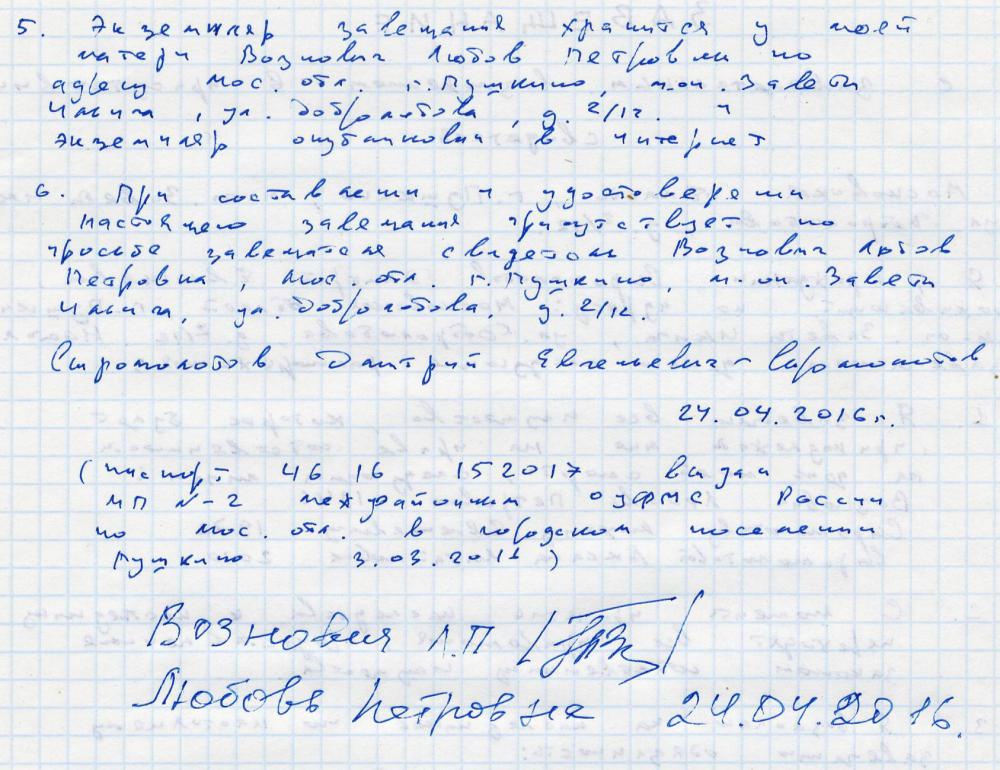 5. Экземпляр завещания хранится у моей
матери Вознович Любовь Петровны по
адресу Мос. обл. г. Пушкино, м-он. Заветы
Ильича, ул. Добролюбова, д. 2/12. И
экземпляр опубликован в интернет
6. При составлении и удостоверении
настоящего завещания присутствует по
просьбе завещателя свидетель Вознович Любовь
Петровна, Мос. обл. г. Пушкино, м-он. Заветы
Ильича, ул. Добролюбова, д. 2/12.
Сыромолотов Дмитрий Евгеньевич - Сыромолотов
24.04.2016г.
(паспорт 46 16 152017 выдан
МП №2 межрайонным ОУФМС России
по Мос. обл. в городском поселении
Пушкино 3.03.2016)
Вознович Л.П
Любовь Петровна 24.04.2016.